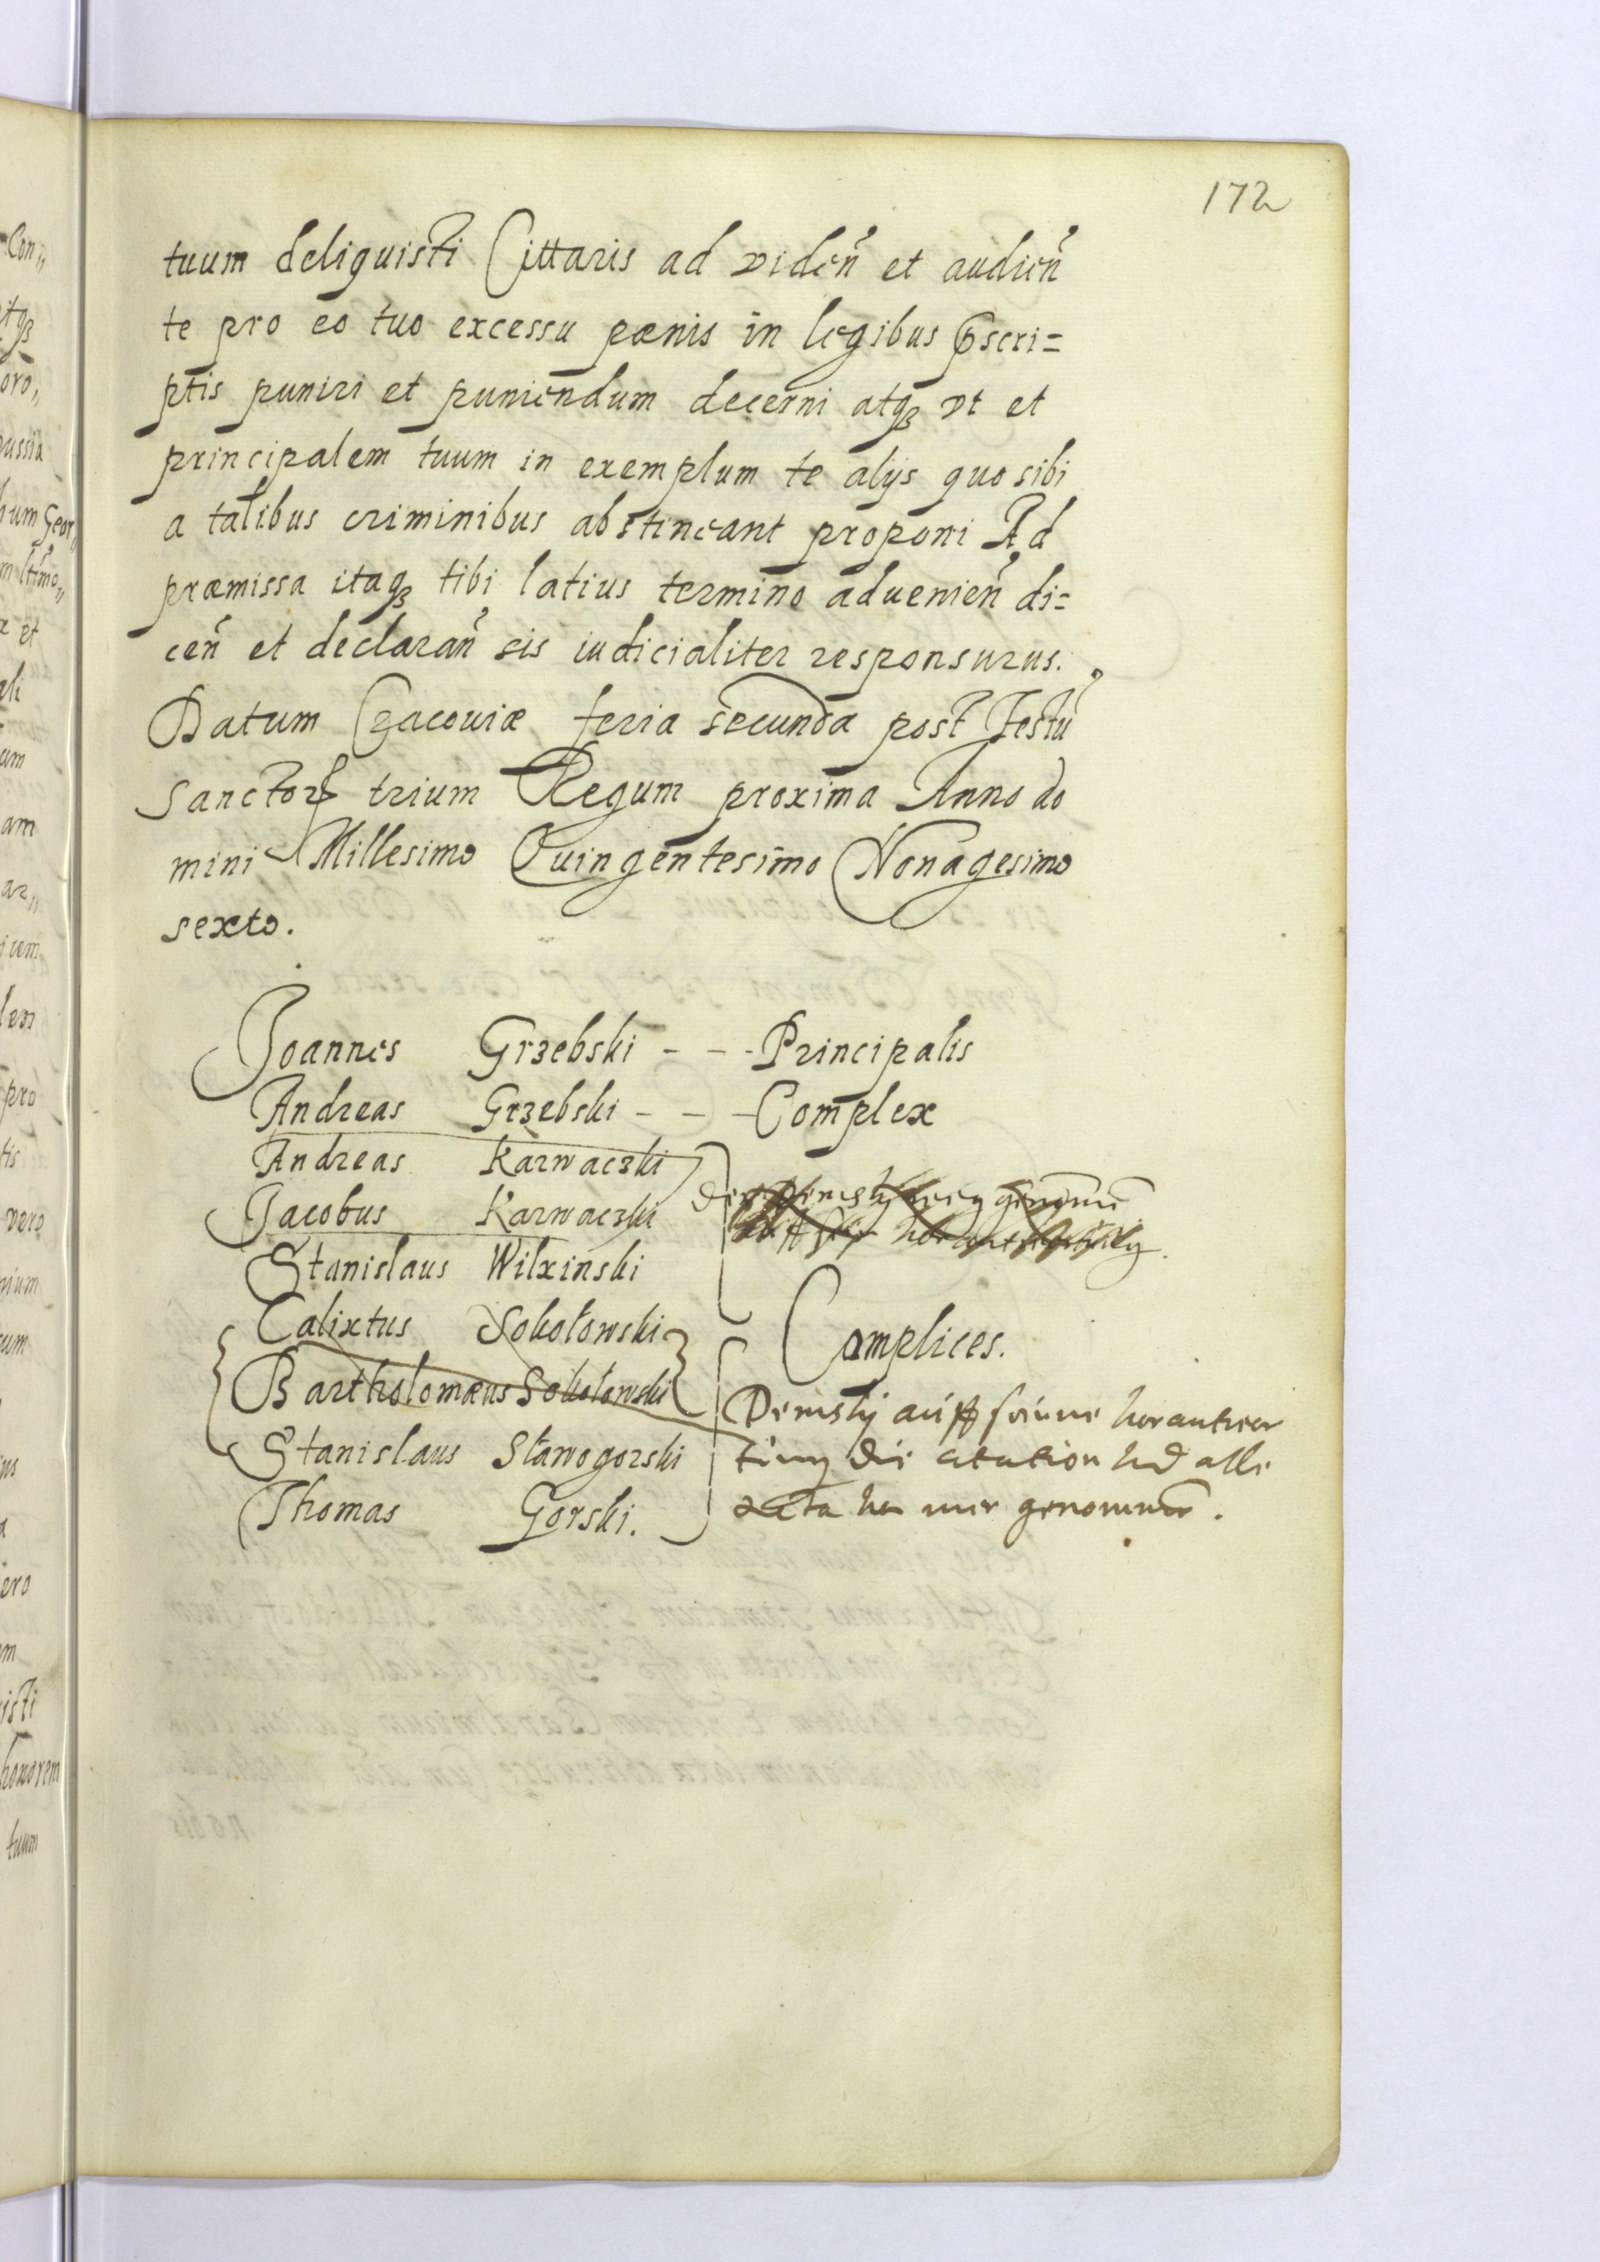 172
tuum deliquisti Cittaris ad viden̄ et audien̄
te pro eo tuo excessu pœnis in legibus p̱scri=
ptis puniri et puniendum decerni atqꝫ vt et
principalem tuum in exemplum te alijs quo sibi
a talibus criminibus abstineant proponi Ad
præmissa itaqꝫ tibi latius termino aduenien̄ di=
cen̄ et declaran̄ sis iudicialiter responsurus.
Datum Cracouiæ feria secunda post Festū
Sanctorꝝ trium Regum proxima Anno do
mini Millesimo Quingentesimo Nonagesimo
sexto.
Joannes Grzebski - - - Principalis
Andreas Grzebski - - - Complex
Andreas Karwaczki
Jacobus Karwaczki
Stanislaus Wilxinski
Calixtus Sokołowski
Complices.
Bartholomæus Sokołowski
Stanislaus Sławogorski
Thomas Gorski.
Demskij auff seinne verantwor
tung die citation vnd alle
acta von mir genommen.